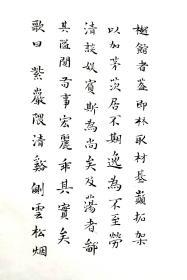 樾館者蓋即林取材基巔拓架
以加茅茨居不期逸為不至勞
清談娛賓斯為尚矣及蕩者鄙
其隘闃苟事宏麗乖其實矣
歌曰 紫巖隈清谿側雲松烟